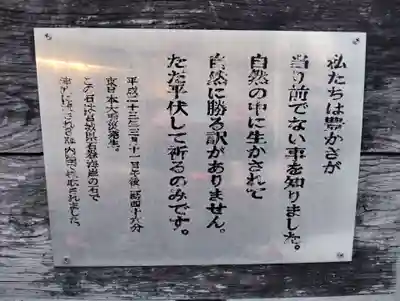 私たちは豊かさが
当り前でない事を知りました。
自然の中に生かされて
自然に勝る訳がありません。
ただ平伏して祈るのみです。
平成二十三年三月十一日午後二時四十六分
東日本大震災発生。
この石は宮城県石巻海岸の石で
され
されました。